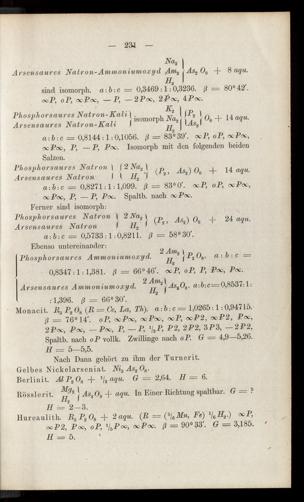 — 231 —
Na₂
Arsensaures Natron-Ammoniumoxyd Am₂ } As₂ O₈ + 8 aqu.
H₂
sind isomorph. a:b:c = 0,3469:1:0,3236. β = 80°42'.
∞P, oP, ∞P∞, — P, — 2P∞, 2P∞, 4P∞.
K₂
Phosphorsaures Natron-Kali } isomorph Na₂ } {P₂ } O₈ + 14 aqu.
Arsensaures Natron-Kali H₂ {As₂
a:b:c = 0,8144:1:0,1056. β = 83°39'. ∞P, oP, ∞P∞,
∞P∞, P, — P, P∞. Isomorph mit den folgenden beiden
Salzen.
Phosphorsaures Natron } { 2 Na₂ } (P₂, As₂) O₈ + 14 aqu.
Arsensaures Natron H₂
a:b:c = 0,8271:1:1,099. β = 83°0'. ∞P, oP, ∞P∞,
∞P∞, P, — P, P∞. Spaltb. nach ∞P∞.
Ferner sind isomorph:
Phosphorsaures Natron } 2 Na₂ } (P₂, As₂) O₈ + 24 aqu.
Arsensaures Natron H₂
a:b:c = 0,5733:1:0,8211. β = 58°30'.
Ebenso untereinander:
Phosphorsaures Ammoniumoxyd. 2 Am₂ } P₂ O₈. a:b:c =
H₂
0,8347:1:1,381. β = 66°46'. ∞P, oP, P, P∞, P∞.
Arsensaures Ammoniumoxyd. 2 Am₂ } As₂O₈. a:b:c=0,8537:1:
H₂
:1,396. β = 66°30'.
Monacit. R₃ P₂ O₈ (R = Ce, La, Th). a:b:c = 1,0265:1:0,94715.
β = 76°14'. oP, ∞P∞, ∞P∞, ∞P, ∞P2, ∞P2, P∞,
2P∞, P∞, — P∞, P, — P, ½P, P2, 2P2, 3P3, — 2P2,
Spaltb. nach oP vollk. Zwillinge nach oP. G = 4,9–5,26.
H = 5–5,5.
Nach Dana gehört zu ihm der Turnerit.
Gelbes Nickelarseniat. Ni₃ As₂ O₈.
Berlinit. Al P₂ O₈ + ½ aqu. G = 2,64. H = 6.
Rösslerit. Mg₂ } As₂O₈ + aqu. In Einer Richtung spaltbar. G = ?
H₂
H = 2–3.
Hureaulith. R₃ P₂ O₈ + 2 aqu. (R = (⅚ Mn, Fe) ⅙ H₂.) ∞P,
∞P2, P∞, oP, ½P∞, ∞P∞. β = 90°33'. G = 3,185.
H = 5.